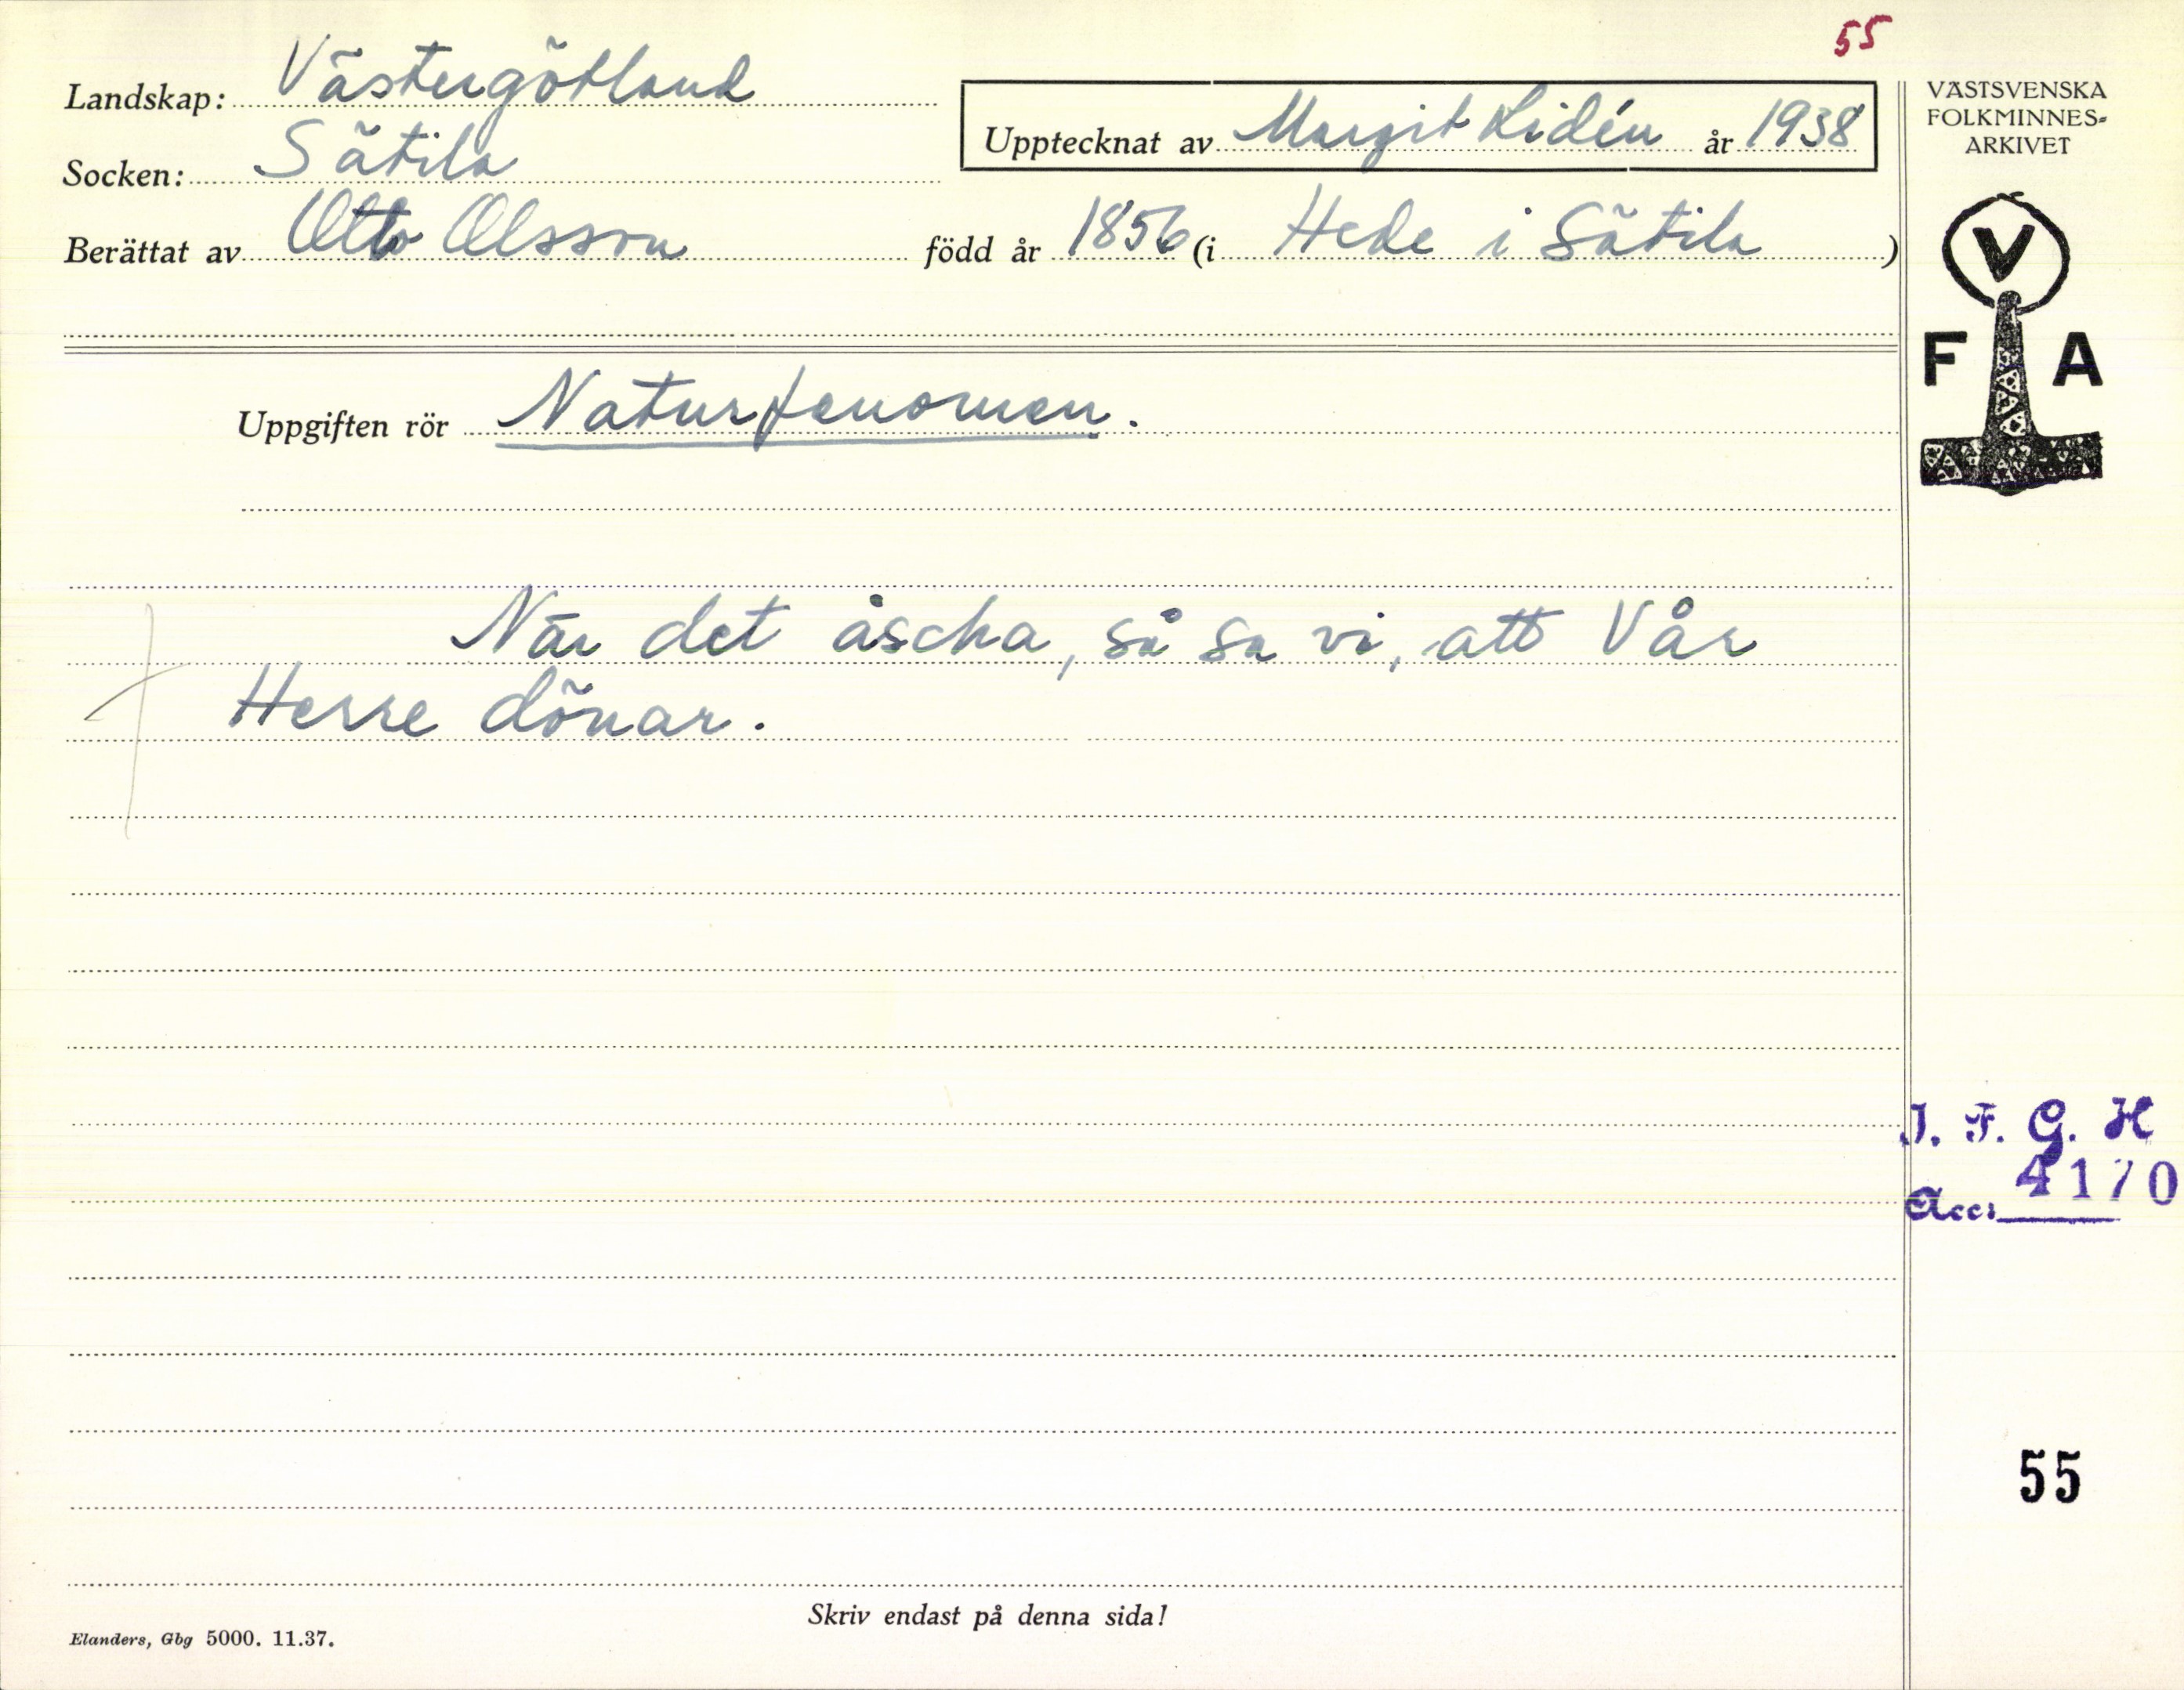 55
Landskap: Västergötland
Socken: Sätila
Berättat av Otto Olsson född år 1856 (i Hede i Sätila)
Upptecknat av Margit Lidén år 1938
VÄSTSVENSKA
FOLKMINNES-
ARKIVET
V
F A
Uppgiften rör Naturfenomen.
När det åscha, så sa vi, att Vår
Herre dönar.
I. F. G. H
Acc: 4170
55
Skriv endast på denna sida!
Elanders, Gbg 5000. 11.37.